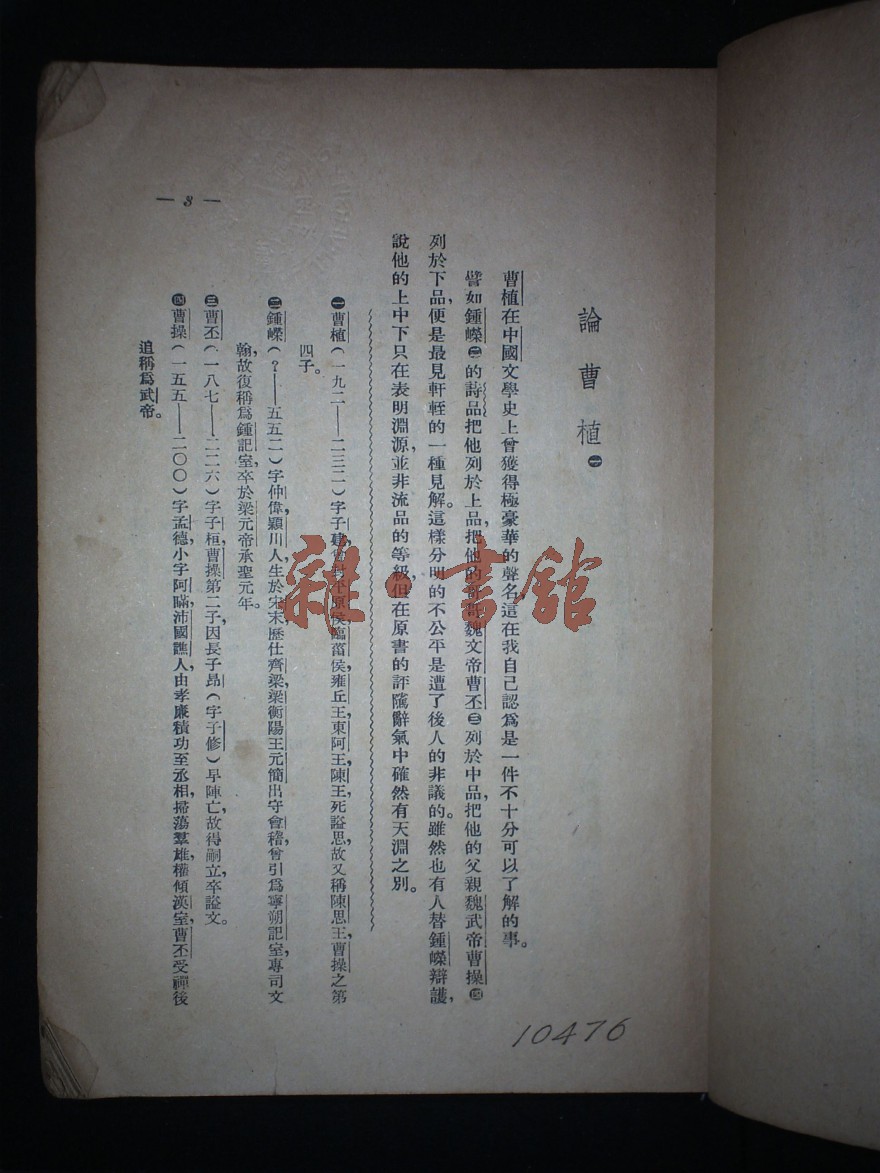 論曹植㊀
曹植在中國文學史上曾獲得極豪華的聲名，這在我自己認爲是一件不十分可以了解的事。
譬如鍾嶸㊁的詩品把他列於上品，把他的哥哥魏文帝曹丕㊂列於中品，把他的父親魏武帝曹操㊃
列於下品，便是最見軒輊的一種見解。這樣分明的不公平是遭了後人的非議的。雖然也有人替鍾嶸辯護，
說他的上中下只在表明淵源，並非流品的等級，但在原書的評隲辭氣中確然有天淵之別。
㊀曹植（一九二——二三二）字子建，曾封平原侯，臨菑侯，雍丘王，東阿王，陳王，死謚思，故又稱陳思王，曹操之第
四子。
㊁鍾嶸（？——五五二）字仲偉，潁川人，生於宋末，歷仕齊梁，梁衡陽王元簡出守會稽，曾引爲寧朔記室，專司文
翰，故復稱爲鍾記室，卒於梁元帝承聖元年。
㊂曹丕（一八七——二二六）字子桓，曹操第二子，因長子昂（字子修）早陣亡，故得嗣立，卒謚文。
㊃曹操（一五五——二〇〇）字孟德，小字阿瞞，沛國譙人，由孝廉積功至丞相，掃蕩羣雄，權傾漢室，曹丕受禪後
追稱爲武帝。
— 3 —
10476
雜·書館